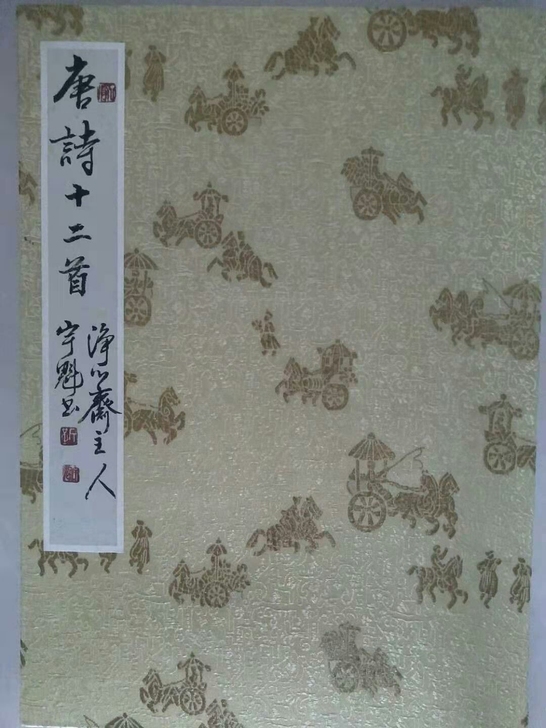 唐詩十二首
淨心齋主人
宇魁书